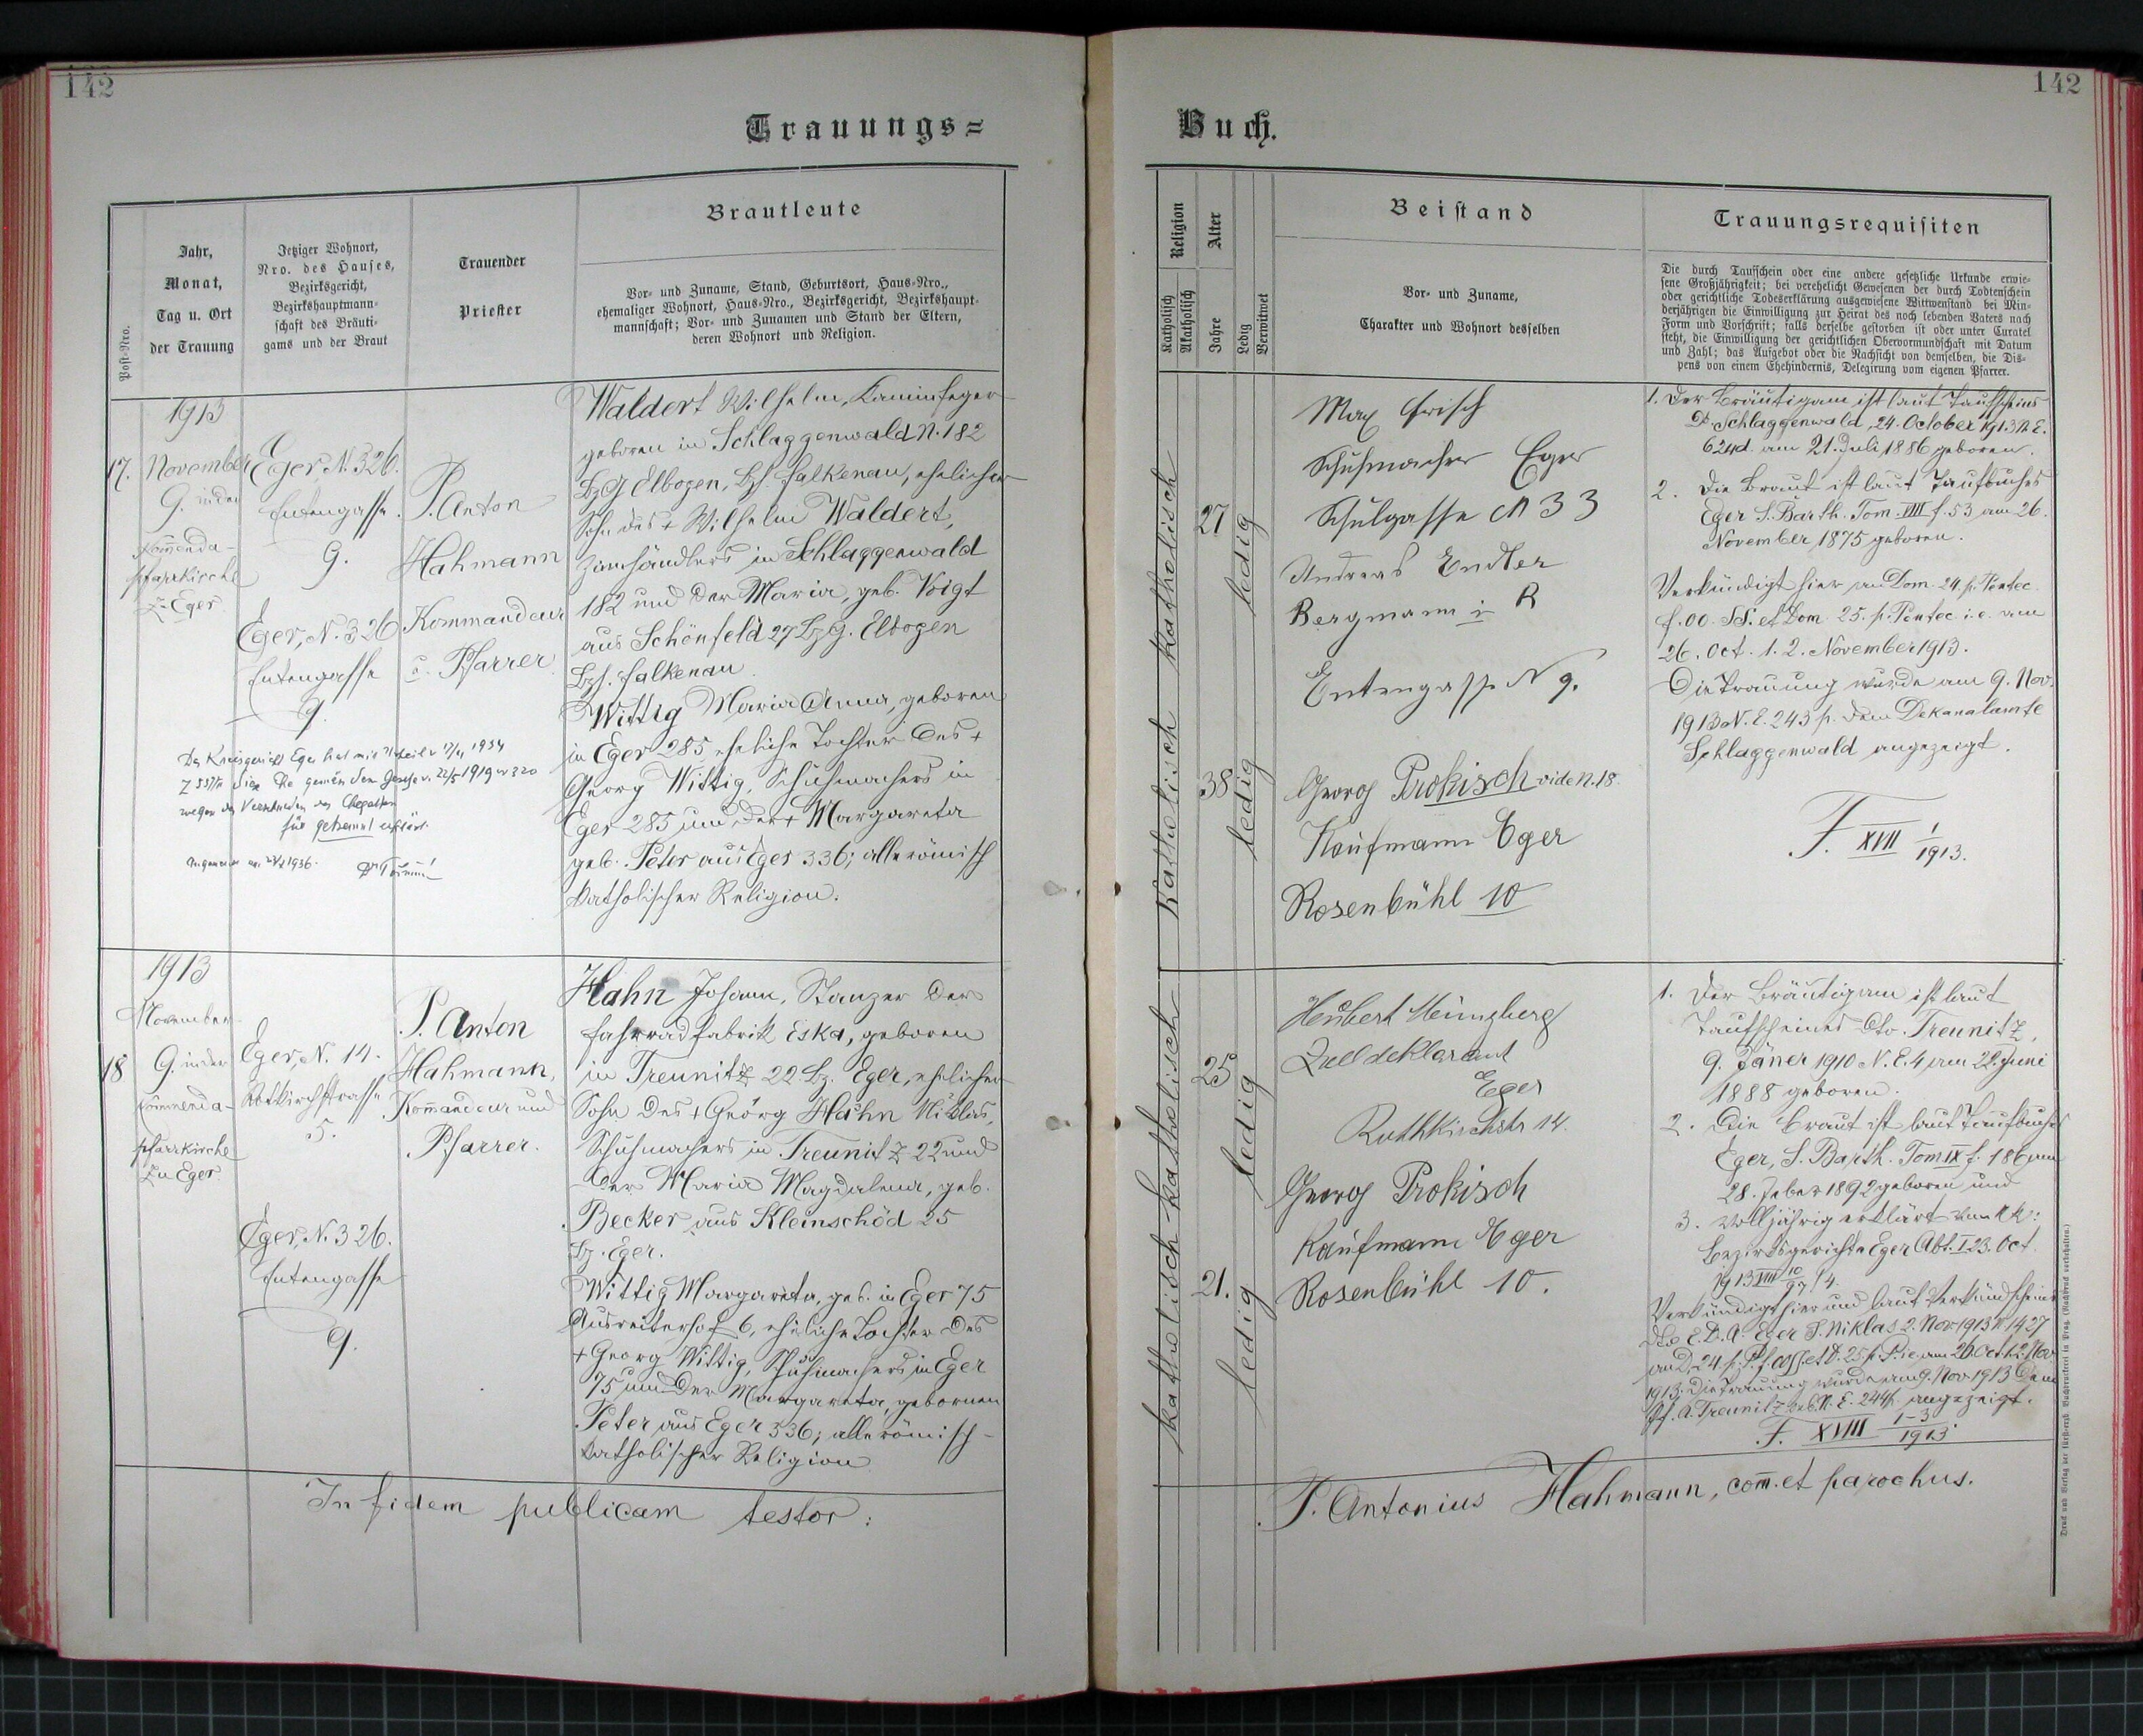 142
142
Trauungs=
Buch.
Post-Nro.
Jahr,
Monat,
Tag u. Ort
der Trauung
Jetziger Wohnort,
Nro. des Hauses,
Bezirksgericht,
Bezirkshauptmann-
schaft des Bräuti-
gams und der Braut
Trauender
Priester
Brautleute
Vor- und Zuname, Stand, Geburtsort, Haus-Nro.,
ehemaliger Wohnort, Haus-Nro., Bezirksgericht, Bezirkshaupt-
mannschaft; Vor- und Zunamen und Stand der Eltern,
deren Wohnort und Religion.
Religion
Katholisch
Akatholisch
Alter
Jahre
Ledig
Verwitwet
Beistand
Vor- und Zuname,
Charakter und Wohnort desselben
Trauungsrequisiten
Die durch Taufschein oder eine andere gesetzliche Urkunde erwie-
sene Großjährigkeit; bei verehelicht Gewesenen der durch Todtenschein
oder gerichtliche Todeserklärung ausgewiesene Wittwenstand bei Min-
derjährigen die Einwilligung zur Heirat des noch lebenden Vaters nach
Form und Vorschrift; falls derselbe gestorben ist oder unter Curatel
steht, die Einwilligung der gerichtlichen Obervormundschaft mit Datum
und Zahl; das Aufgebot oder die Nachsicht von demselben, die Dis-
pens von einem Ehehindernis, Delegirung vom eigenen Pfarrer.
17.
1913
November
9. in der
Kommenda-
pfarrkirche
zu Eger
Eger, N. 326.
Entengasse.
9.
Eger, N. 326
Entengasse
9.
P. Anton
Hahmann
Kommandeur
u. Pfarrer
Waldert Wilhelm, Kaminfeger
geboren in Schlaggenwald N. 182
BzG Elbogen, Bzh. Falkenau, ehelicher
Sohn des + Wilhelm Waldert,
Zinnhändlers in Schlaggenwald
182 und der Maria, geb. Voigt
aus Schönfeld 27 BzG. Elbogen
Bzh. Falkenau.
Wittig Maria Anna, geboren
in Eger 285, eheliche Tochter des +
Georg Wittig, Schuhmachers in
Eger 285 und der + Margareta
geb. Peter aus Eger 336; alle römisch
katholischer Religion.
Das Kreisgericht Eger hat mit Urteil v. 1934
diese Ehe gemäß dem Gesetze v. 22/5 1919 N 320
wegen des Verschuldens der Ehegatten
für getrennt erklärt.
1936.
katholisch katholisch
27
ledig
38
ledig
Max Frisch
Schuhmacher Eger
Schulgasse N 33
Andreas Endler
Bergmann i R
Entengasse N 9.
Georg Prokisch vide N. 18.
Kaufmann Eger
Rosenbühl 10
1. Der Bräutigam ist laut Taufscheins
Schlaggenwald, 24. October 1913 N. E.
624 am 21. Juli 1886 geboren.
2. Die Braut ist laut Taufbuches
Eger S. Barth. Tom. VIII f. 53 am 26.
November 1875 geboren.
Verkündigt hier am Dom. 24. p. Pentec.
f. OO. SS. et Dom. 25. p. Pentec i. e. am
26. Oct. 1. 2. November 1913.
Die Trauung wurde am 9. Nov.
1913 N. E. 243 p. dem Dekanalamte
Schlaggenwald angezeigt.
F. XVII 1/1913.
18
1913
November
9. in der
Kommenda-
pfarrkirche
zu Eger
Eger, N. 14.
Rotkirchstrasse
5.
Eger, N. 326.
Entengasse
9.
P. Anton
Hahmann,
Kommandeur und
Pfarrer.
Hahn Johann, Stanzer der
Fahrradfabrik Eska, geboren
in Treunitz 22 Bz. Eger, ehelicher
Sohn des + Georg Hahn Niklas,
Schuhmachers in Treunitz 22 und
der Maria Magdalena, geb.
Becker aus Kleinschöd 25
Bz. Eger.
Wittig Margareta, geb. in Eger 75
Ausreiterhof 6, eheliche Tochter des
+ Georg Wittig, Schuhmachers in Eger
75 und der Margareta, gebornen
Peter aus Eger 336; alle römisch-
katholischer Religion
katholisch katholisch
25
ledig
21.
ledig
Hubert Münzberg
Zolldeklarant
Eger
Rothkirchstr 14.
Georg Prokisch
Kaufmann Eger
Rosenbühl 10.
1. Der Bräutigam ist laut
Taufscheines dto. Treunitz,
9. Jäner 1910 N. E. 4 am 22. Juni
1888 geboren.
2. Die Braut ist laut Taufbuches
Eger, S. Barth. Tom IX f. 186 am
28. Feber 1892 geboren und
3. volljährig erklärt vom k k:
Bezirksgerichte Eger Abt. I 23. Oct.
1913
Verkündigt hier und laut Verkündscheins
dto E. D. A. Eger S. Niklas 2. Nov 1913 N. 1427
am D. 24. p. P. f. OO SS. et D. 25 p. P. i. e. am 26. Oct 1. 2. Nov
1913. Die Trauung wurde am 9. Nov 1913 dem
Pf. A. Treunitz N. E. 244 p. angezeigt.
F. XVIII 1-3/1913
In fidem publicam testor:
P. Antonius Hahmann, com. et parochus.
Druck und Verlag der fürsterzb. Buchdruckerei in Prag. (Nachdruck vorbehalten.)